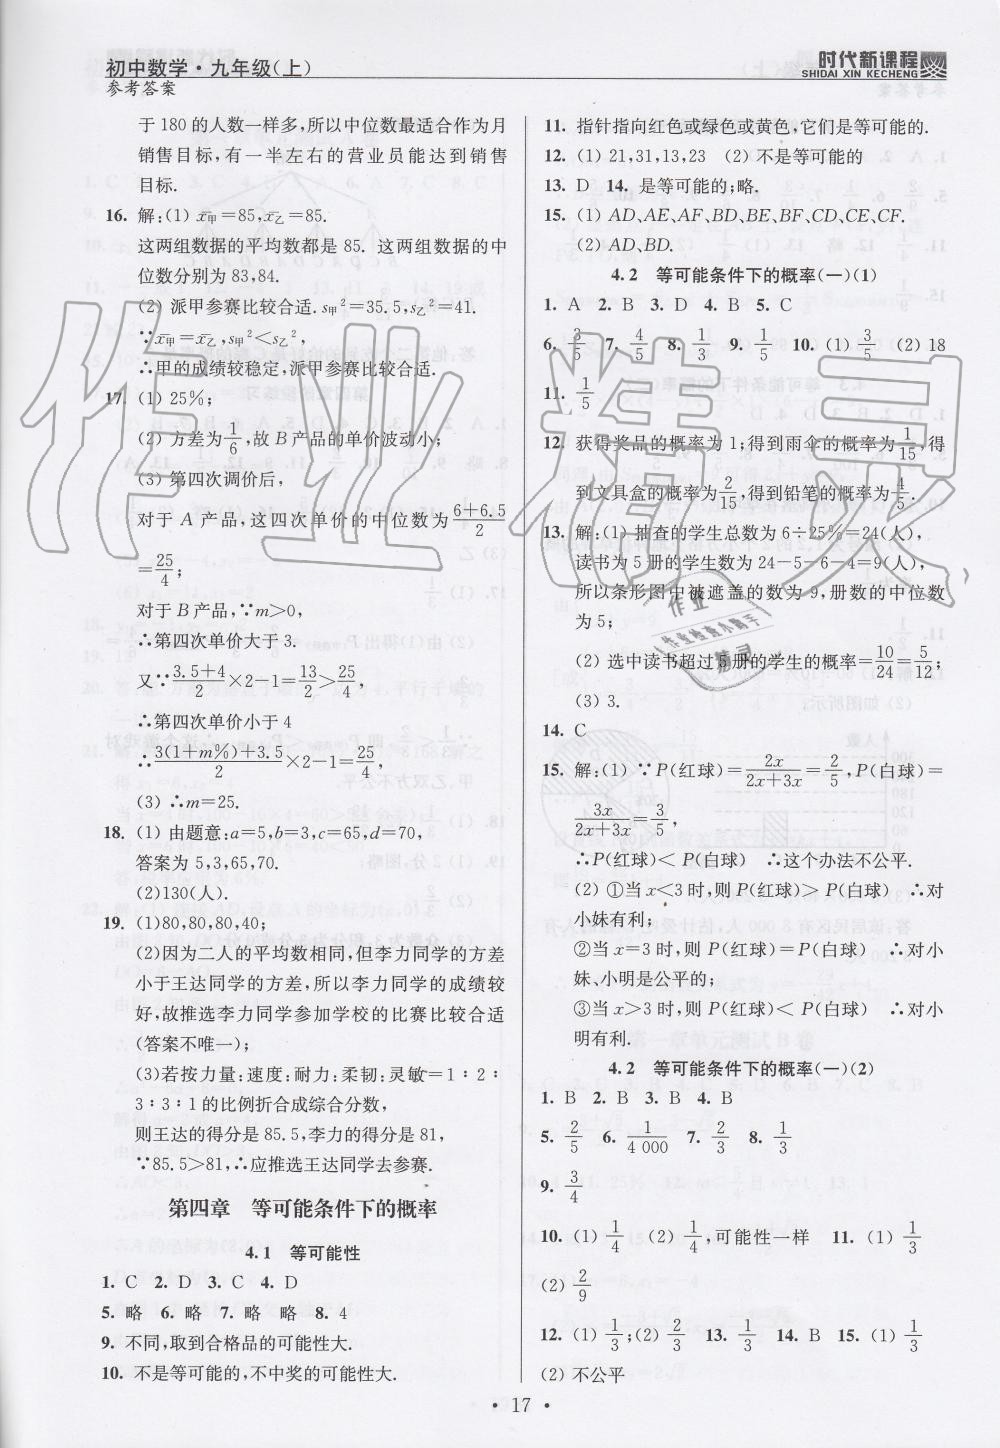 初中数学·九年级(上)
参考答案
时代新课程
SHIDAI XIN KECHENG
于180的人数一样多,所以中位数最适合作为月
销售目标,有一半左右的营业员能达到销售
目标.
16. 解:(1) x̄甲=85,x̄乙=85.
这两组数据的平均数都是 85. 这两组数据的中
位数分别为 83,84.
(2) 派甲参赛比较合适. s甲²=35.5,s乙²=41.
∵x̄甲=x̄乙,s甲²<s乙²,
∴甲的成绩较稳定,派甲参赛比较合适.
17. (1) 25%;
(2) 方差为1/6,故 B 产品的单价波动小;
(3) 第四次调价后,
对于 A 产品,这四次单价的中位数为(6+6.5)/2
=25/4;
对于 B 产品,∵m>0,
∴第四次单价大于 3.
又∵(3.5+4)/2×2-1=13/2>25/4,
∴第四次单价小于 4
∴(3(1+m%)+3.5)/2×2-1=25/4,
(3) ∴m=25.
18. (1) 由题意:a=5,b=3,c=65,d=70,
答案为 5,3,65,70.
(2)130(人).
19. (1)80,80,80,40;
(2)因为二人的平均数相同,但李力同学的方差
小于王达同学的方差,所以李力同学的成绩较
好,故推选李力同学参加学校的比赛比较合适
(答案不唯一);
(3)若按力量:速度:耐力:柔韧:灵敏=1∶2∶
3∶3∶1 的比例折合成综合分数,
则王达的得分是 85.5,李力的得分是 81,
∵85.5>81,∴应推选王达同学去参赛.
第四章 等可能条件下的概率
4.1 等可能性
1. C 2. D 3. C 4. D
5. 略 6. 略 7. 略 略 8. 4
9. 不同,取到合格品的可能性大.
10. 不是等可能的,不中奖的可能性大.
11. 指针指向红色或绿色或黄色,它们是等可能的.
12. (1) 21,31,13,23 (2) 不是等可能的
13. D 14. 是等可能的;略.
15. (1) AD、AE、AF、BD、BE、BF、CD、CE、CF.
(2) AD、BD.
4.2 等可能条件下的概率(一)(1)
1. A 2. B 3. D 4. B 5. C
6. 3/5 7. 4/5 8. 1/3 9. 1/5 10. (1) 3/5 (2) 18
11. 1/5
12. 获得奖品的概率为 1;得到雨伞的概率为1/15,得
到文具盒的概率为2/15,得到铅笔的概率为4/5.
13. 解:(1) 抽查的学生总数为 6÷25%=24(人),
读书为 5 册的学生数为 24-5-6-4=9(人),
所以条形图中被遮盖的数为 9,册数的中位数
为 5;
(2) 选中读书超过5册的学生的概率=10/24=5/12;
(3) 3.
14. C
15. 解:(1) ∵P(红球)=2x/(2x+3x)=2/5,P(白球)=
3x/(2x+3x)=3/5,
∴P(红球)< P(白球) ∴这个办法不公平.
(2) ①当 x<3 时,则 P(红球)> P(白球) ∴对
小妹有利;
②当 x=3 时,则 P(红球)=P(白球) ∴对小
妹、小明是公平的;
③当 x>3 时,则 P(红球)< P(白球) ∴对小
明有利.
4.2 等可能条件下的概率(一)(2)
1. B 2. B 3. B 4. B
5. 2/5 6. 1/4 000 7. 2/3 8. 1/3
9. 3/4
10. (1) 1/4 (2) 1/4,可能性一样 11. (1) 1/3
(2) 2/9
12. (1) 1/3;(2) 2/3 13. 1/3 14. B 15. (1) 1/3
(2) 不公平
· 17 ·
作业精灵
作业
作业检查小助手
精灵